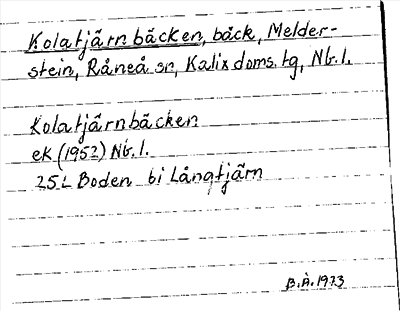 Kolatjärnbäcken, bäck, Melder-
stein, Råneå sn, Kalix doms. tg, Nb. l.
Kolatjärnbäcken
ek (1952) Nb. l.
25L Boden bi Långtjärn
B.Å. 1973